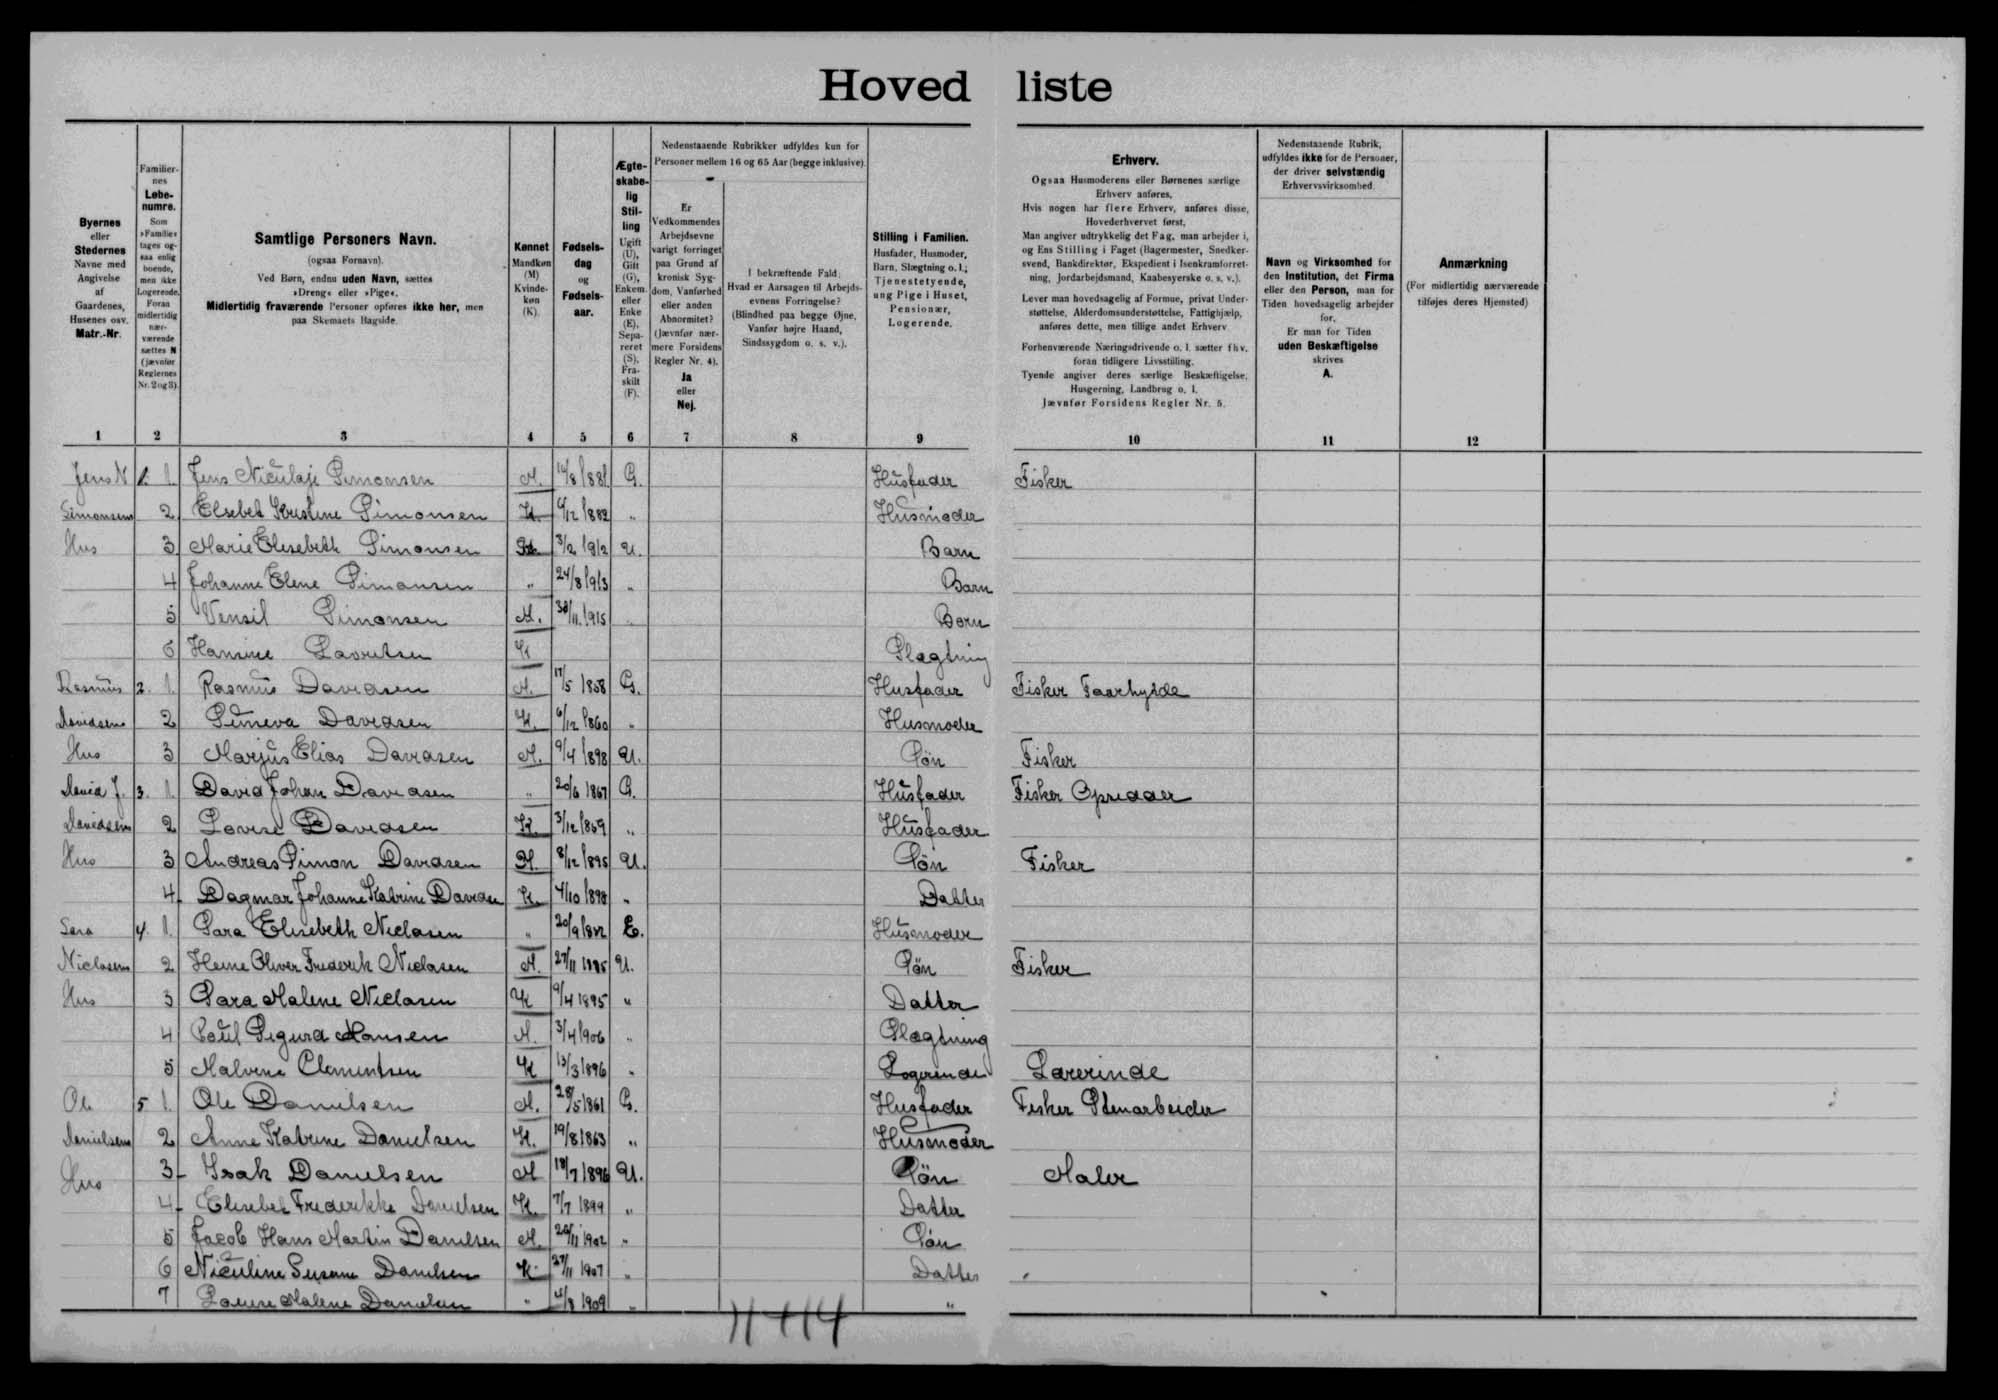 Hoved liste
Byernes
eller
Stedernes
Navne med
Angivelse
af
Gaardenes,
Husenes osv.
Matr.-Nr.
Familier-
nes
Løbe-
numre.
Som
»Familie«
tages og-
saa enlig
boende,
men ikke
Logerende.
Foran
midlertidig
nær-
værende
sættes N
(jævnfør
Reglernes
Nr. 2 og 3).
Samtlige Personers Navn.
(ogsaa Fornavn).
Ved Børn, endnu uden Navn, sættes
»Dreng« eller »Pige«.
Midlertidig fraværende Personer opføres ikke her, men
paa Skemaets Bagside.
Kønnet
Mandkøn
(M)
Kvinde-
køn
(K).
Fødsels-
dag
og
Fødsels-
aar.
Ægte-
skabe-
lig
Stil-
ling
Ugift
(U),
Gift
(G),
Enkem.
eller
Enke
(E),
Sepa-
reret
(S),
Fra-
skilt
(F).
Nedenstaaende Rubrikker udfyldes kun for
Personer mellem 16 og 65 Aar (begge inklusive).
Er
Vedkommendes
Arbejdsevne
varigt forringet
paa Grund af
kronisk Syg-
dom, Vanførhed
eller anden
Abnormitet?
(Jævnfør nær-
mere Forsidens
Regler Nr. 4).
Ja
eller
Nej.
I bekræftende Fald:
Hvad er Aarsagen til Arbejds-
evnens Forringelse?
(Blindhed paa begge Øjne,
Vanfør højre Haand,
Sindssygdom o. s. v.).
Stilling i Familien.
Husfader, Husmoder,
Barn, Slægtning o. l.;
Tjenestetyende,
ung Pige i Huset,
Pensionær,
Logerende.
Erhverv.
Ogsaa Husmoderens eller Børnenes særlige
Erhverv anføres.
Hvis nogen har flere Erhverv, anføres disse,
Hovederhvervet først.
Man angiver udtrykkelig det Fag, man arbejder i,
og Ens Stilling i Faget (Bagermester, Snedker-
svend, Bankdirektør, Ekspedient i Isenkramforret-
ning, Jordarbejdsmand, Kaabesyerske o. s. v.).
Lever man hovedsagelig af Formue, privat Under-
støttelse, Alderdomsunderstøttelse, Fattighjælp,
anføres dette, men tillige andet Erhverv
Forhenværende Næringsdrivende o. l. sætter fhv.
foran tidligere Livsstilling.
Tyende angiver deres særlige Beskæftigelse,
Husgerning, Landbrug o. l.
Jævnfør Forsidens Regler Nr. 5.
Nedenstaaende Rubrik,
udfyldes ikke for de Personer,
der driver selvstændig
Erhvervsvirksomhed.
Navn og Virksomhed for
den Institution, det Firma
eller den Person, man for
Tiden hovedsagelig arbejder
for.
Er man for Tiden
uden Beskæftigelse
skrives
A.
Anmærkning
(For midlertidig nærværende
tilføjes deres Hjemsted)
1 2 3 4 5 6 7 8 9 10 11 12
Jens N 1. 1. Jens Niculaji Simonsen M. 14/8 1881 G. Husfader Fisker
Simonsens 2 Elsebet Kristine Simonsen K. 6/12 1882 „ Husmoder
Hus 3 Marie Elisebeth Simonsen 3/2 1912 U. Barn
4 Johanne Elene Simonsen „ 24/8 1913 „ Barn
5 Simonsen M. 30/11 1915 „ Barn
6 Hansine Lavritsen K Slægtning
Rasmus 2. 1. Rasmus Davidsen M. 17/5 1858 G. Husfader Fisker Faarhyrde
Davidsens 2 Davidsen K. 6/12 1860 „ Husmoder
Hus 3 Marjus Elias Davidsen M. 9/4 1898 U. Sön Fisker
David J. 3. 1. David Johan Davidsen „ 20/6 1867 G. Husfader Fisker Opsidder
Davidsens 2 Lovise Davidsen K. 3/12 1869 „ Husfader
Hus 3 Andreas Simon Davidsen M. 8/12 1895 U. Sön Fisker
4 Dagmar Johanne Katrine Davidsen K. 4/10 1898 „ Datter
Sara 4. 1. Sara Elisebeth Niclasen „ 20/9 E. Husmoder
Niclasens 2 Heine Oliver Frederik Niclasen M. 27/11 1885 U. Sön Fisker
Hus 3 Sara Malene Niclasen K 9/4 1895 „ Datter
4 Poul Sigurd Hansen M. 3/4 1906 „ Slægtning
5 Malvina Clementsen K 13/3 1896 „ Logerende Lærerinde
Ole 5 1. Ole Danielsen M. 28/5 1861 G. Husfader Fisker Stenarbeider
Danielsens 2 Anne Katrine Danielsen K. 19/8 1863 „ Husmoder
Hus 3 Isak Danielsen M 18/7 1896 U. Sön Maler
4 Elisebet Frederikke Danielsen K. 7/7 1899 „ Datter
5 Jacob Hans Martin Danielsen M. 20/11 1902 „ Sön
6 Niculine Susanne Danielsen K. 27/11 1907 „ Datter
7 Louise Malene Danielsen „ 4/8 1909 „ „
11+14